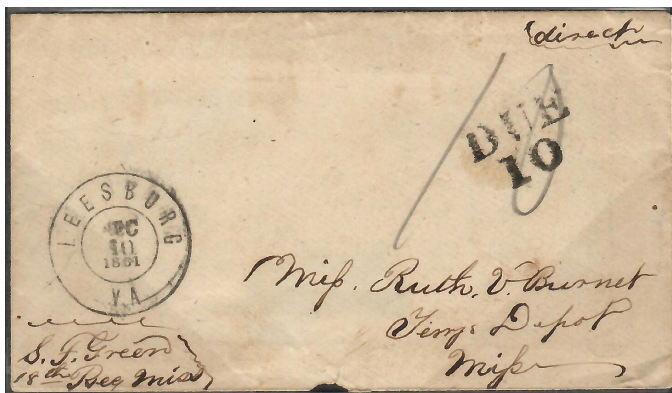 direct
DUE
10
10
LEESBURG
DEC
10
1861
VA
Miss. Ruth. V. Burnet
Terrys Depot
Miss
S. F. Green
18th Reg Miss